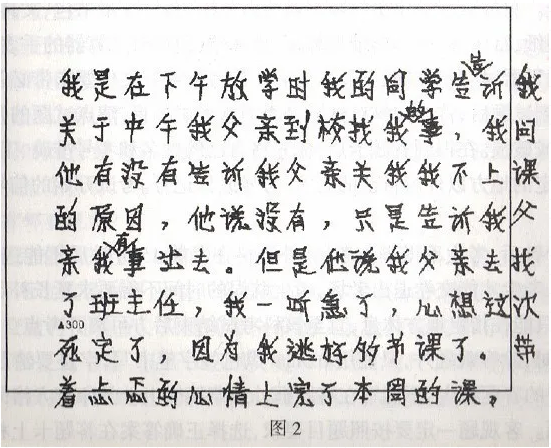 我是在下午放学时我的同学告诉我
关于中午我父亲到校找我的事，我问
他有没有告诉我父亲我不上课
的原因，他说没有，只是告诉我父
亲我有事出去。但是他说我父亲去找
了班主任。我一听急了，心想这次
▲300
死定了，因为我逃好的书课了。带
着忐忑的心情上完了本周的课，
图2